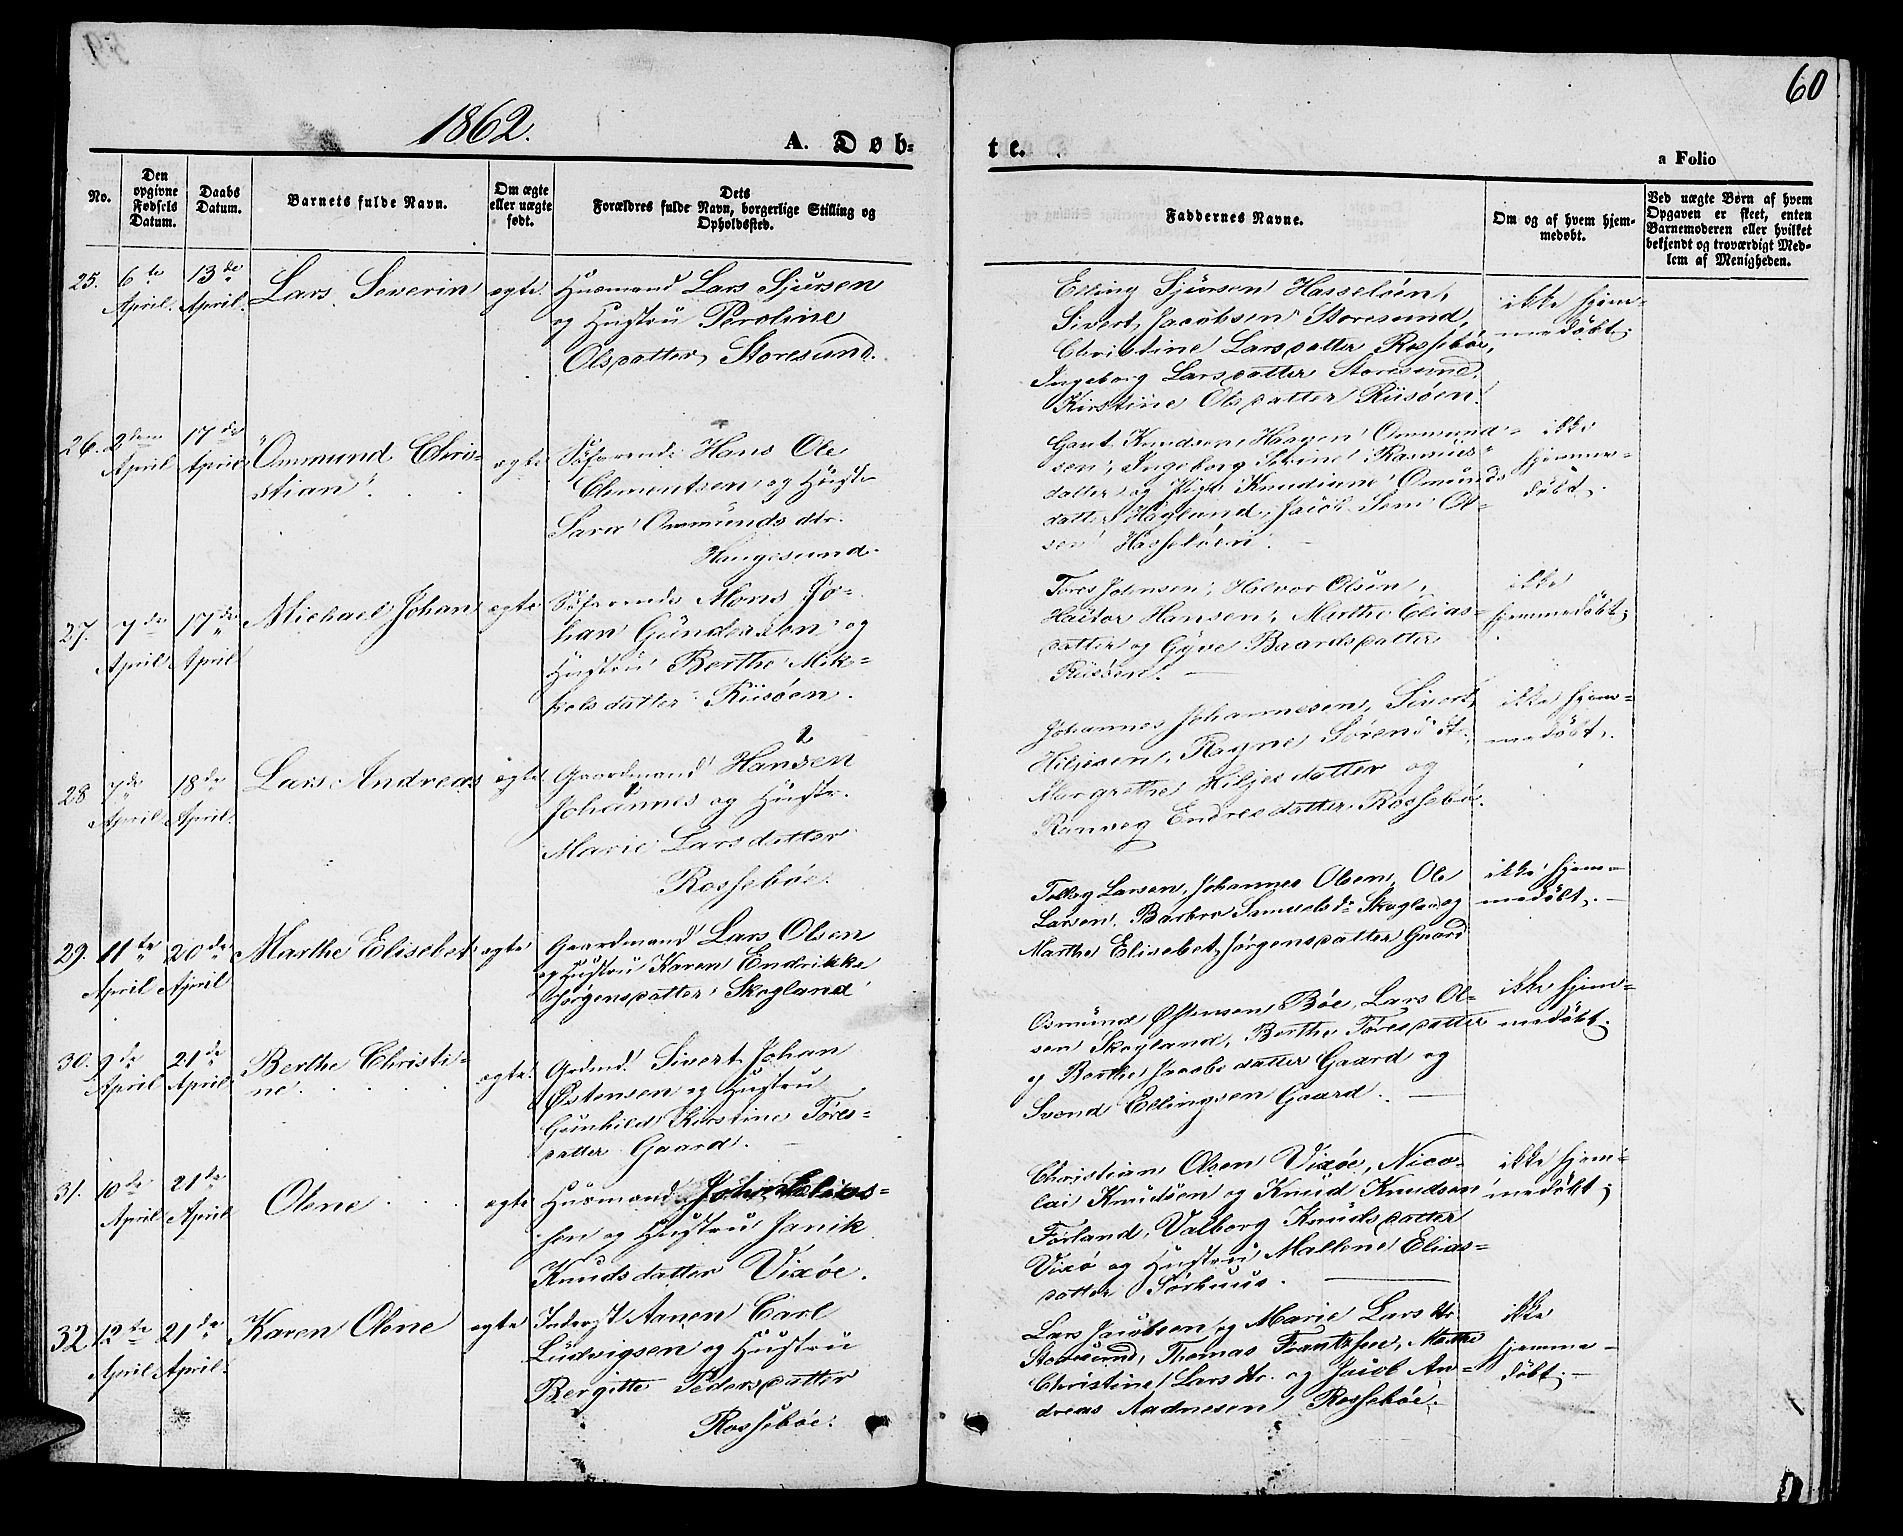 60
1862.
A. Døb-
te.
a Folio
No.
Den
opgivne
Fødsels
Datum.
Daabs
Datum.
Barnets fulde Navn.
Om ægte
eller uægte
født.
Dets
Forældres fulde Navn, borgerlige Stilling og
Opholdssted.
Faddernes Navne.
Om og af hvem hjem-
medøbt.
Ved uægte Børn af hvem
Opgaven er skeet, enten
Barnemoderen eller hvilket
bekjendt og troværdigt Med-
lem af Menigheden.
25.
6te
April.
13de
April.
Lars Severin
ægte.
Husmand Lars Sjursen
og Hustru Peroline
Olsdatter, Storesund.
Elling Sjursen Hasseløen,
Sivert Jacobsen Storesund,
Christine Larsdatter Rossebøe,
Ingeborg Larsdatter Storesund.
Kirstine Olsdatter Risøen.
ikke hjem-
medøbt.
26.
2den
April
17de
April
Ommund Chri-
stian.
ægte
Søfarende Hans Ole
Clementsen og Hustr
Sara Ommunds dtr.
Haugesund.
Gaut Knudsen, Haagen Ommund-
sen, Ingeborg Serine Rasmus-
datter og Pige Knudiane Omunds
datter Hagland, Jacob Ol-
sen Hasseløen.
ikke
hjemme-
døbt.
27.
7de
April.
17de
April
Michael Johan
ægte
Søfarende Mons Jo-
han Gundersen og
Hustru Berthe Mik-
kelsdatter Risøen.
Tores Johnsen, Halvor Olsen,
Hactor Hansen, Marthe Elias-
datter og Gyve Baardsdatter
Risøen.
ikke
hjemmedøbt;
28
7de
April
18de
April.
Lars Andreas
ægte
2
Gaardmand Hansen
Johannes og Hustr.
Marie Larsdatter
Rossebøe.
Johannes Johannesen, Sivert
Hiljesen, Ragne Sørens dtr,
Margrethe Hiljesdatter og
Ranveg Endresdatter Rossebøe.
ikke hjem-
medøbt.
29.
11te
April
20de
April
Marthe Elisebet
ægte
Gaardmand Lars Olsen
og Hustru Karen Endrikke
Jørgensdatter Skogland
Tolleg Larsen, Johannes Olsen, Ole
Larsen, Barbro Samuelsdr Skogland og
Marthe Elisebet Jørgensdatter Gaard
ikke hjem-
medøbt.
30.
9de
April
21de
April
Berthe Christi-
ne.
ægte.
Grdmd. Sivert Johan
Østensen og Hustru
Gunhild Kirstine Tores-
datter Gaard.
Osmund Østensen Bøe, Lars Ol-
sen Skogland, Berthe Toresdatter
og Berthe Jacobsdatter Gaard og
Svend Ellingsen Gaard.
ikke hjem-
medøbt.
31.
10de
April
21de
April
Olene
ægte
Husmand John Elias-
sen og Hustru Janik
Knudsdatter Vixøe.
Christian Olsen Vixøe, Nico-
lai Knudsen og Knud Knudsen
Førland, Valborg Knudsdatter
Vixø og Hustru Mallene Elias-
datter Sørhuus.
ikke hjem-
medøbt;
32
12te
April
21de
April.
Karen Olene
ægte
Inderst Aanen Carl
Ludvigsen og Hustru
Bergitte Pedersdatter
Rossebøe.
Lars Jacobsen og Marie Lars dtr
Storesund, Thomas Frantzsen, Marthe
Christine Lars dtr. og Jacob An-
dreas Aadnesen Rossebøe.
ikke
hjemme-
døbt.